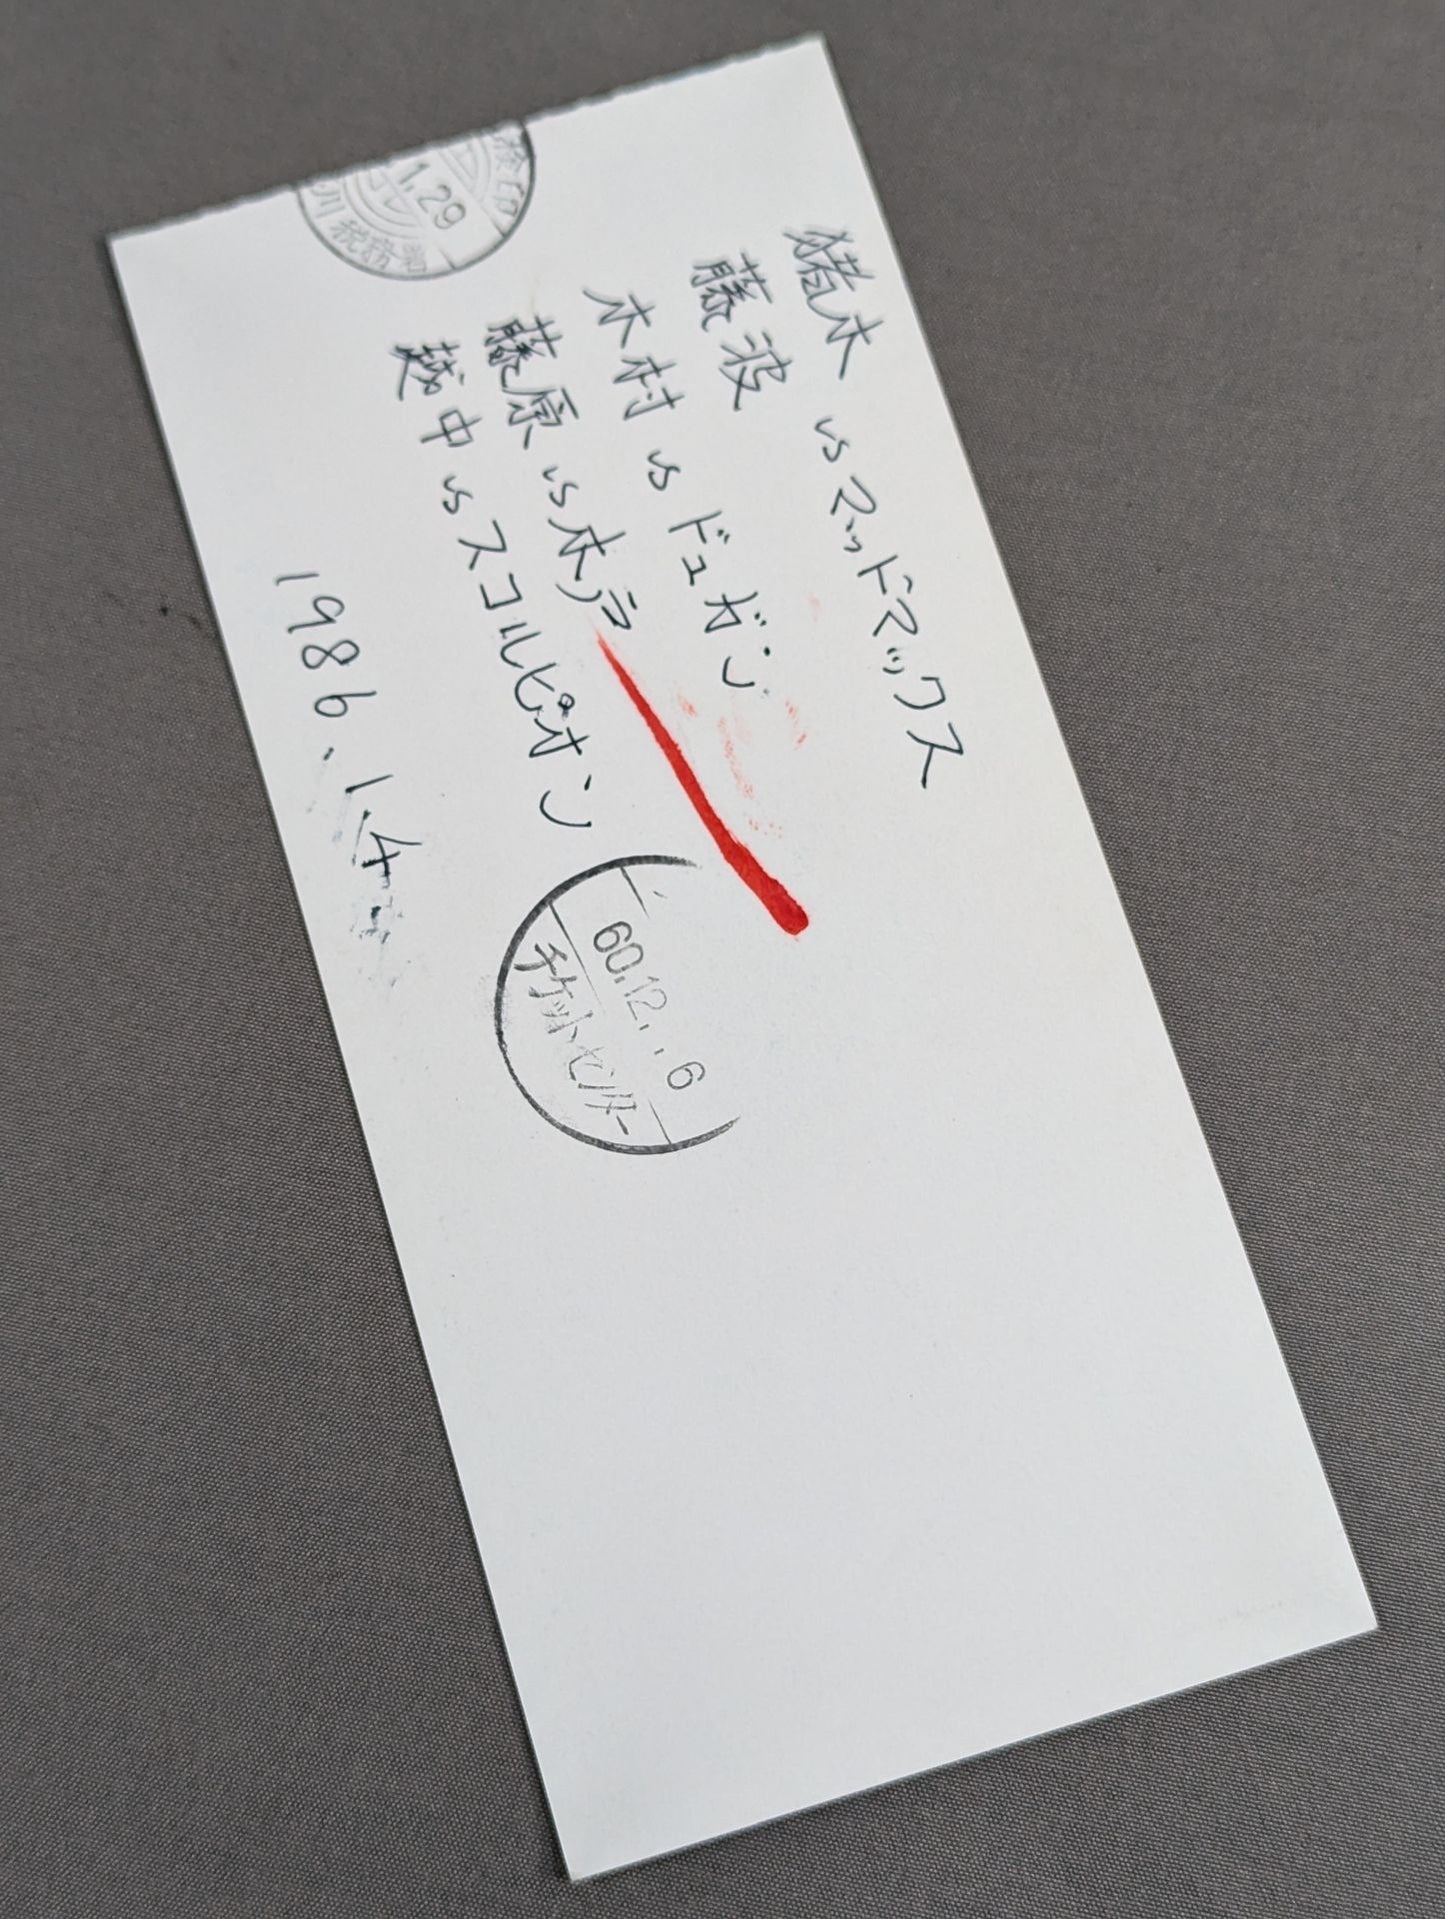 猪木 vs マッドマックス
藤波
木村 vs ドュガン
藤原 vs 木戸
越中 vs スコルピオン
1986.1.4
検印
1.29
川税務署
60.12.6
チケットセンター